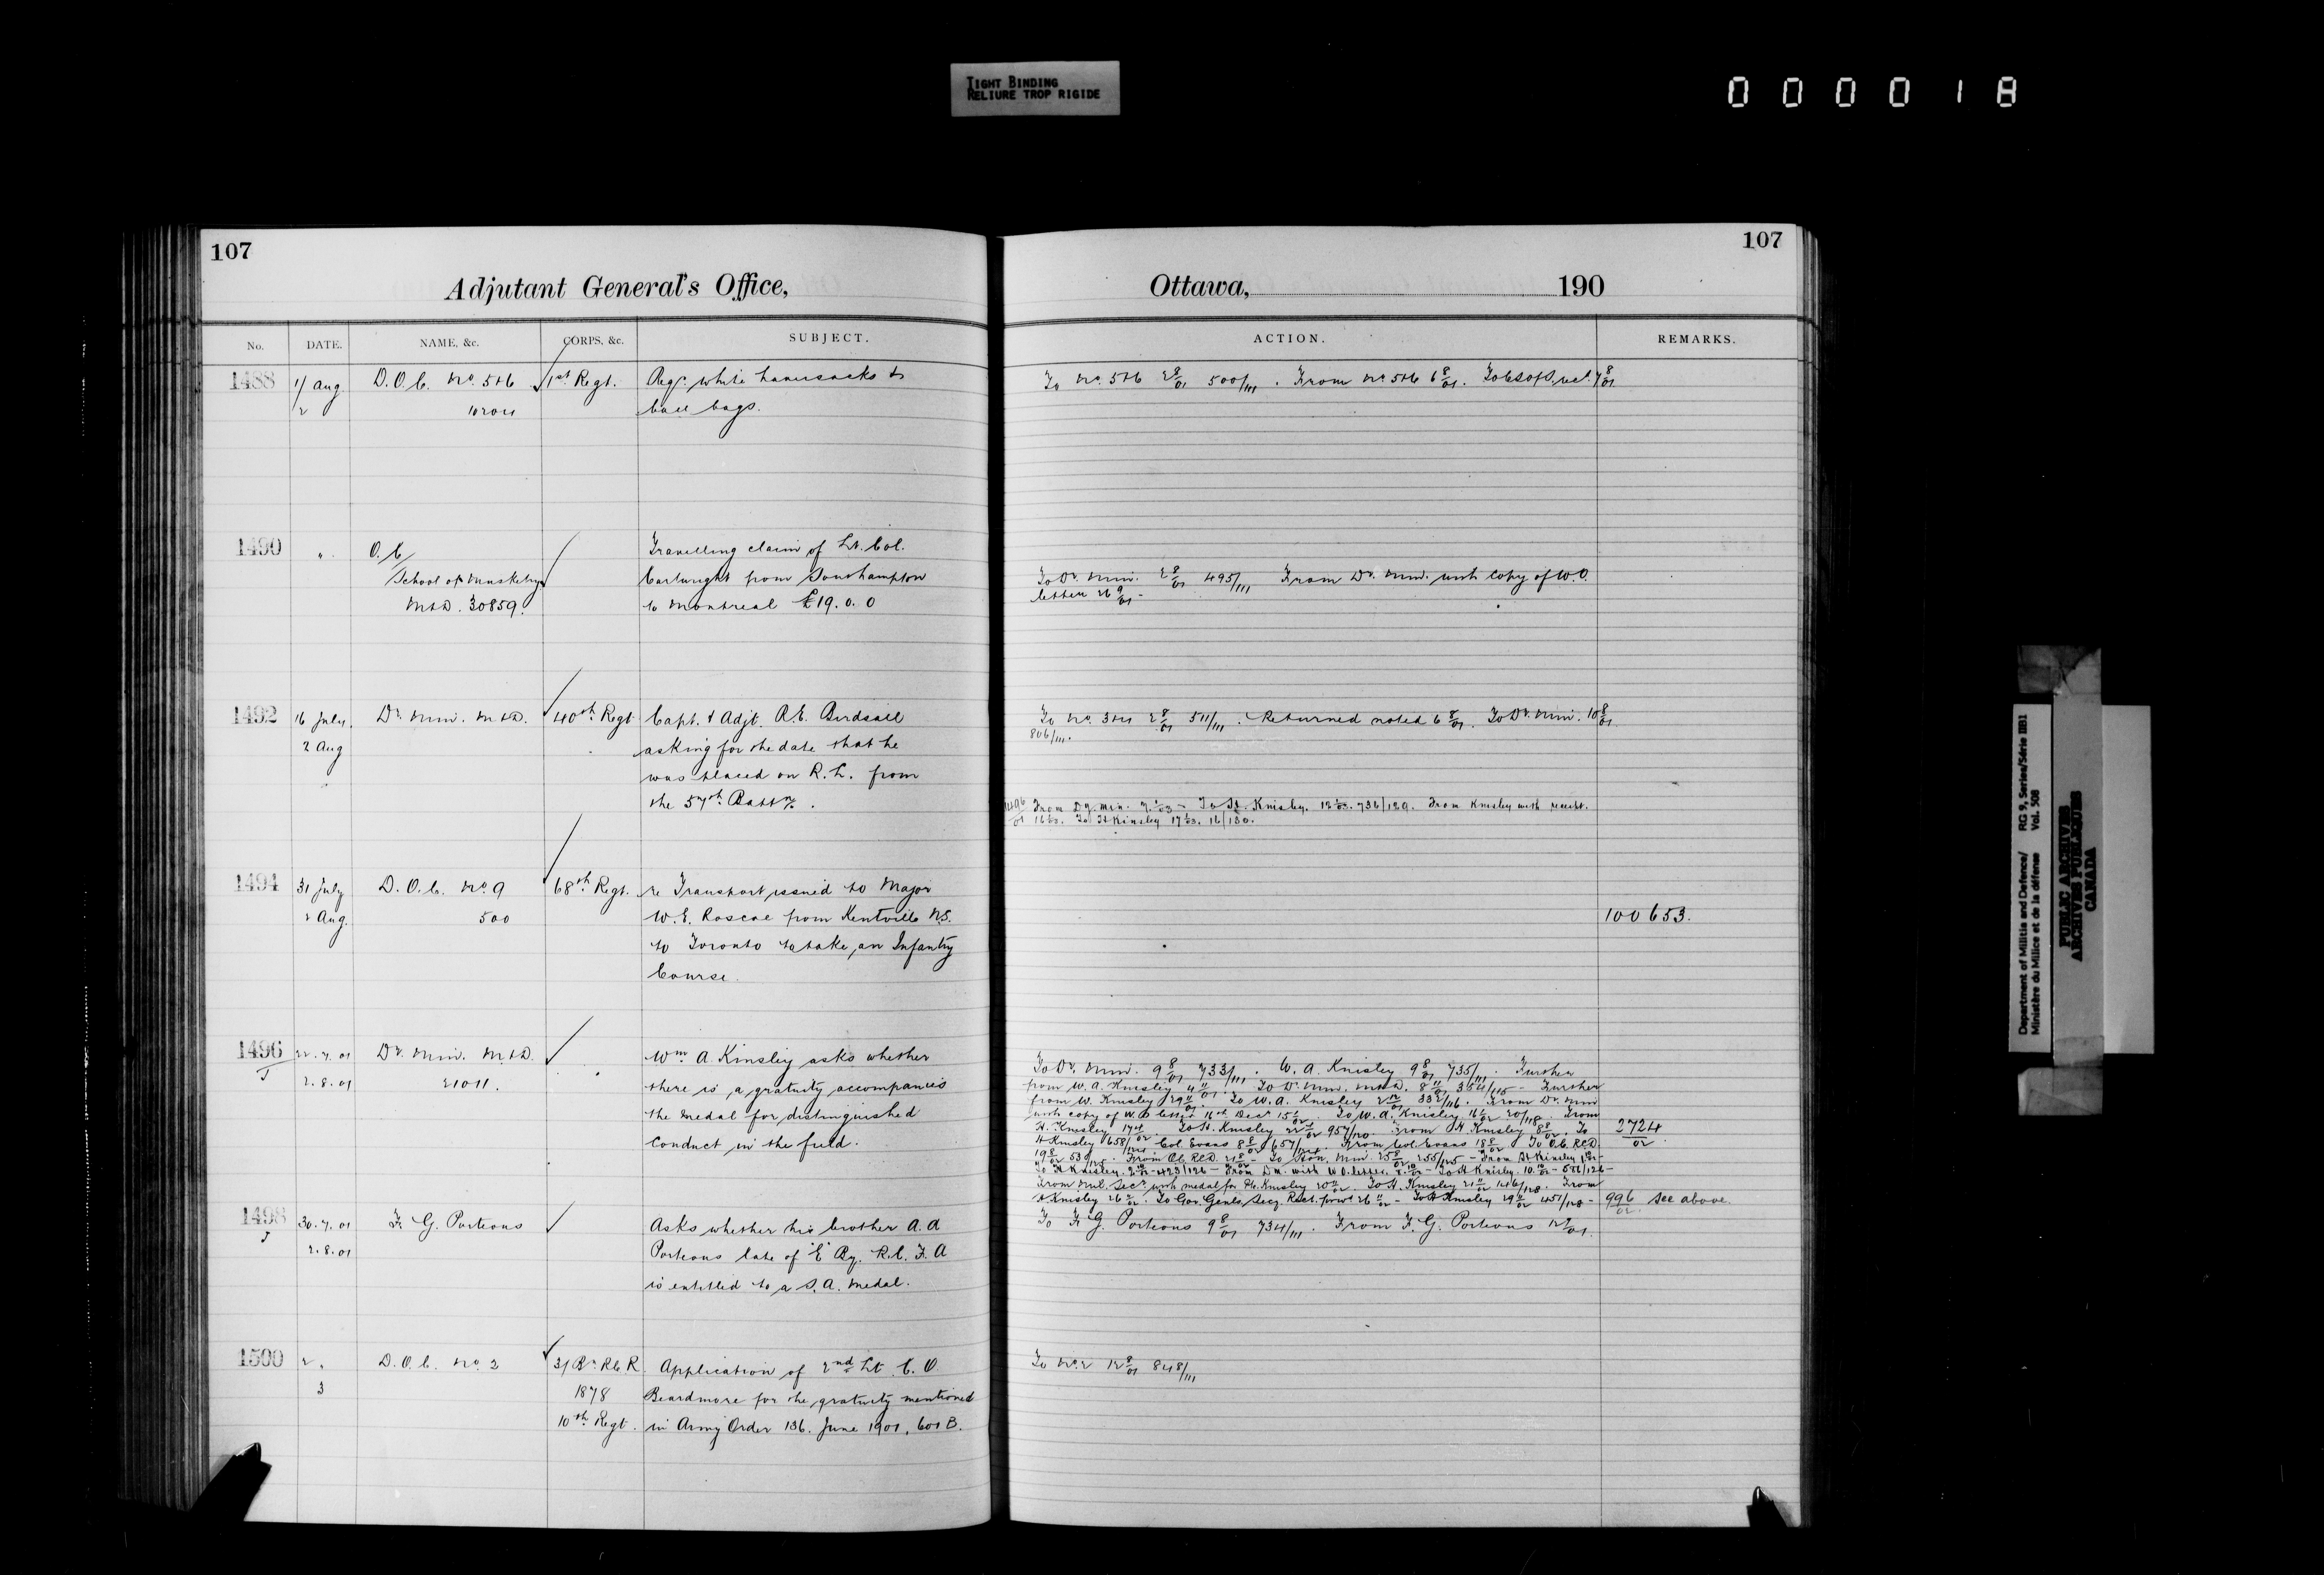 TIGHT BINDING
RELIURE TROP RIGIDE
000018
107
Adjutant General's Office,
No. DATE. NAME, &c. CORPS, &c. SUBJECT.
1488 1/ Aug D.O.C. No. 5+6 1st Regt. Reqn. white haversacks &
2 10204 ball bags.
1490 " O.C. Travelling claim of Lt. Col.
School of Musketry Cartwright from Southampton
M&D. 30859. to Montreal £19.0.0
1492 16 July Dy. Min. M&D. 40th Regt Capt. & Adjt. R.E. Birdsall
2 Aug asking for the date that he
was placed on R.L. from
the 57th Battn.
1494 31 July D.O.C. No. 9 68th Regt. re Transport issued to Major
2 Aug. 500 W.E. Roscoe from Kentville N.S.
to Toronto to take an Infantry
Course.
1496 22.7.01 Dy. Min. M&D. Wm. A Kinsley asks whether
J 2.8.01 21011. there is a gratuity accompanies
the medal for distinguished
conduct in the field.
1498 30.7.01 F. G. Porteous Asks whether his brother A.A
J 2.8.01 Porteous late of "E" By. R.C.F.A
is entitled to a S.A. medal.
1500 2 " D.O.C. No. 2 Application of 2nd Lt. C.O.
3 1878 Beardmore for the gratuity mentioned
10th Regt. in Army Order 136. June 1901, 601 B.
107
Ottawa, 190
ACTION. REMARKS.
To No. 5+6 2 8/01 500/111. From No. 5+6 6 8/01.
To Dy. Min. 2 8/01 495/111 From Dy. Min. with copy of W.O.
letter 26 9/01 -
To No. 3+4 2 8/01 511/111. Returned noted 6 8/01. To Dy. Min. 10 8/01.
806/111.
1496/01 From Dy. Min. 7.1/03 - To H. Knisley. 12 1/03. 736/129. From Knisley with receipt.
16 1/03. To H Kinsley 17 1/03. 16/130.
100653.
To Dy. Min. 9 8/01 733/111. W. A. Knisley 9 8/01 735/111. Further
from W. A. Knisley 4 11/01. To Dy. Min. M&D. 8 11/01 354/115 - Further
from W. Knisley 29 11/01. To W. A. Knisley 2 12/01 332/116. From Dy. Min
with copy of W.O letter 16th Decr. 15 1/02. To W. A. Knisley 16 1/02 20/118. From
H. Knisley 17 4/02. To H. Knisley 22 4/02 957/120. From H. Knisley 8 8/02. To 2724/02
H Knisley 658/124 Col. Evans 8 8/02 657/124. From Col. Evans 18 8/02. To O.C. RCD.
19 8/02 From O.C. RCD. 21 8/02 - To Hon. Min. 25 8/02 255/125 - From H Kinsley
To H Knisley. 423/126 - From D.M. with W.O. letter. To H Knisley. 10. 10/02 - 586/126 -
From Mil. Secy. with medal for Knisley 20 11/02. To H. Knisley 21 11/02 146/128. From
H Knisley 26 11/02. To Gov. Genls. Secy. Rect. forwd 26 11/02 - To H Knisley 29 11/02 451/128 - 996/02 See above.
To F. G. Porteous 9 8/01 734/111. From F. G. Porteous
To No. 2 12 8/01 848/111
Department of Militia and Defence/ RG 9, Series/Série IIB1
Ministère du Milice et de la défense Vol. 508
PUBLIC ARCHIVES
ARCHIVES PUBLIQUES
CANADA